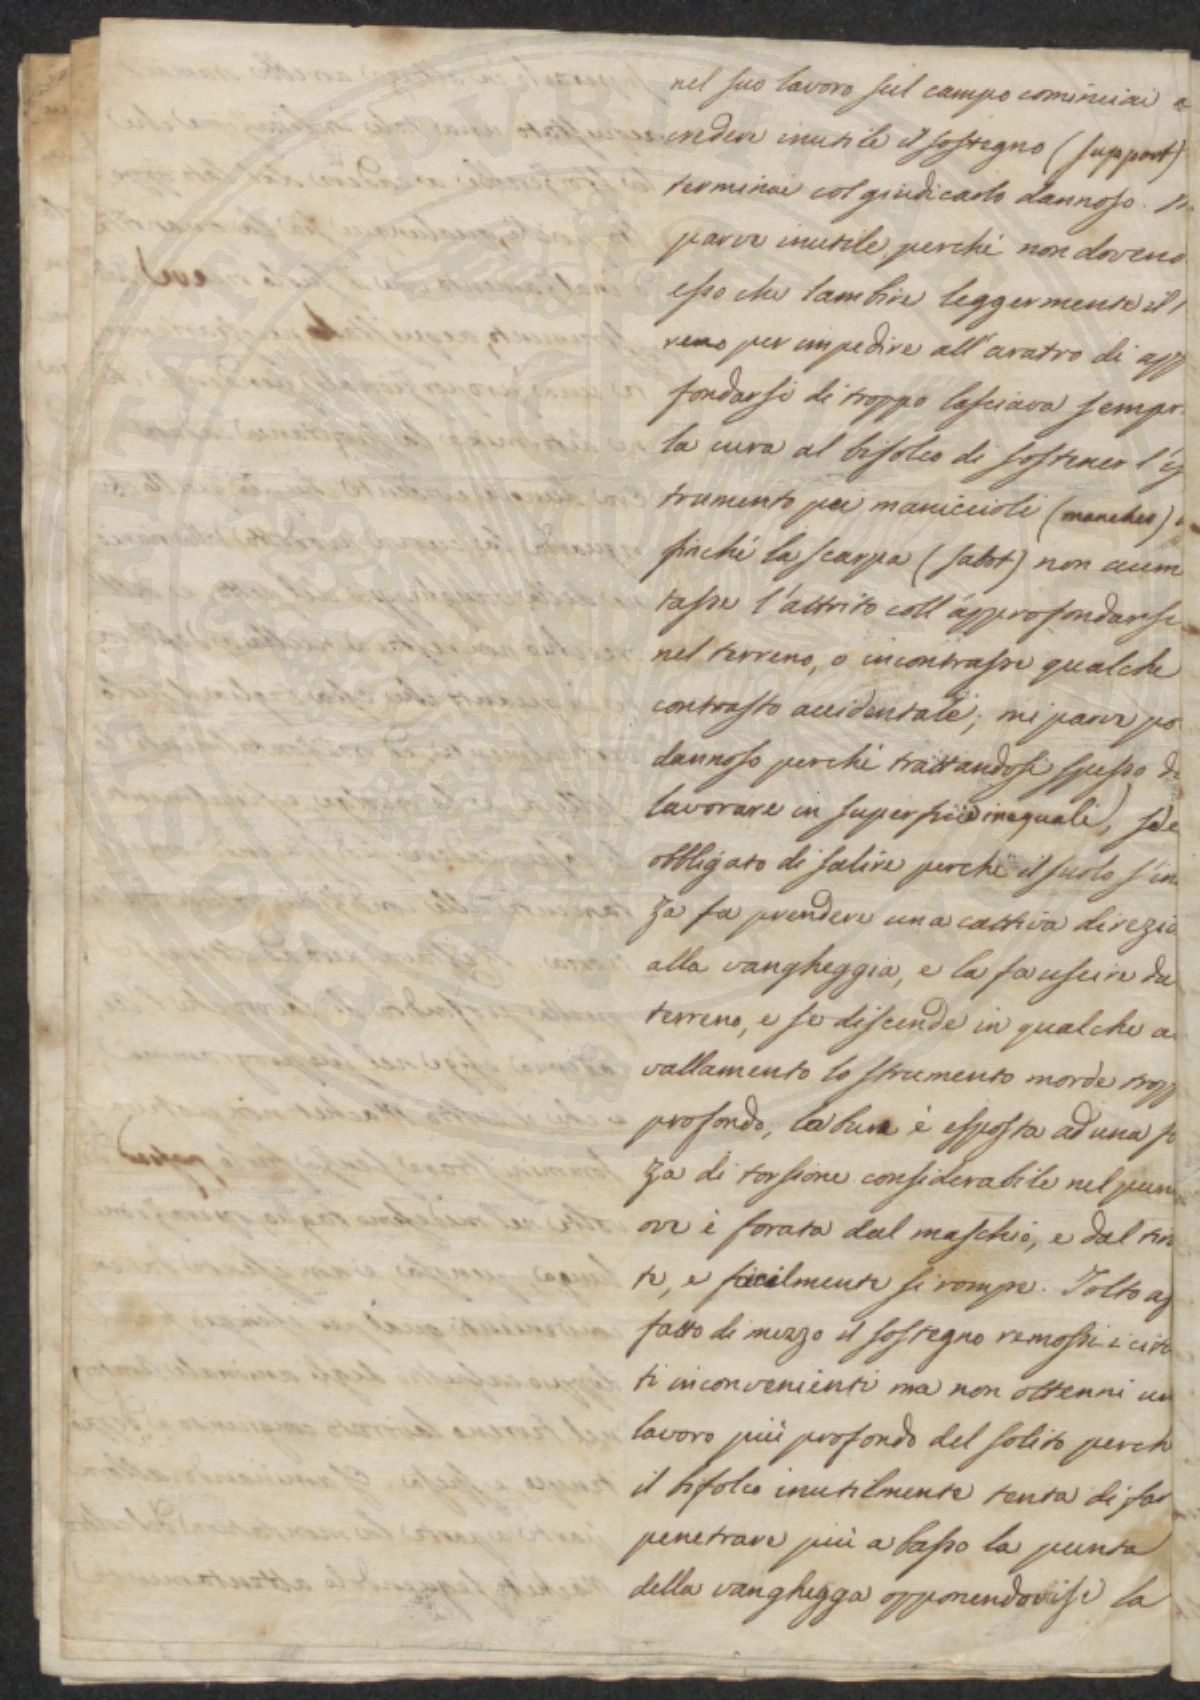 nel suo lavoro sul campo cominciai a
credere inutile il sostegno (support)
terminai col giudicarlo dannoso.
parve inutile perchè non doveno
esso che lambire leggermente il
reno per impedire all'aratro di app
fondarsi di troppo lasciava sempr
la cura al bifolco di sostener l'is
trumento pei maniccioli (manches)
finchè la scarpa (sabot) non aum
tasse l'attrito coll'approfondarsi
nel terreno, o incontrasse qualche
contrasto accidentale; mi parve po
dannoso perchè trattandosi spesso di
lavorare in superficie ineguali, se è
obbligato di salire perchè il suolo s'in
za fa prendere una cattiva direzio
alla vangheggia, e la fa uscire da
terreno, e se discende in qualche a
vallamento lo strumento morde tropp
profondo, la bura è esposta ad una fo
za di torsione considerabile nel pun
ove è forata dal maschio, e dal tira
te, e facilmente si rompe. Tolto af
fatto di mezzo il sostegno remossi i cita
ti inconvenienti ma non ottenni un
lavoro più profondo del solito perch
il bifolco inutilmente tenta di far
penetrare più a basso la punta
della vanghegga opponendovisi la